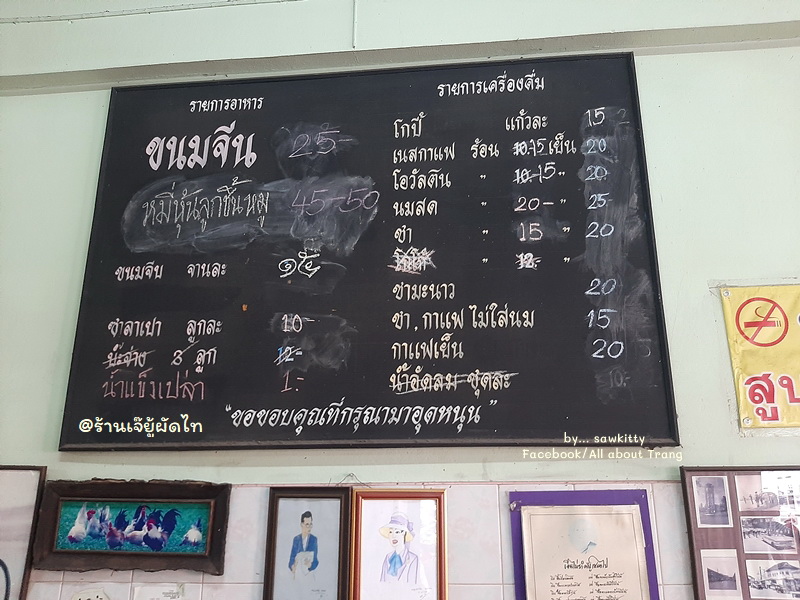 รายการอาหาร
ขนมจีน 25-
หมี่หุ้นลูกชิ้นหมู 45-50
ขนมจีบ จานละ
ซาลาเปา ลูกละ 10-
บ๊ะจ่าง 3 ลูก 12-
น้ำแข็งเปล่า 1.-
รายการเครื่องดื่ม
โกปี๊ แก้วละ 15
เนสกาแฟ ร้อน 10.15 เย็น 20
โอวัลติน " 10.15 " 20
นมสด " 20- " 25-
ชา " 15 " 20
" 12.- "
ชามะนาว 20
ชา, กาแฟ ไม่ใส่นม 15
กาแฟเย็น 20
น้ำอัดลม ชุดละ 10.-
"ขอขอบคุณที่กรุณามาอุดหนุน"
@ร้านเจ๊ยู้ผัดไท
by... sawkitty
Facebook/All about Trang
สูบ